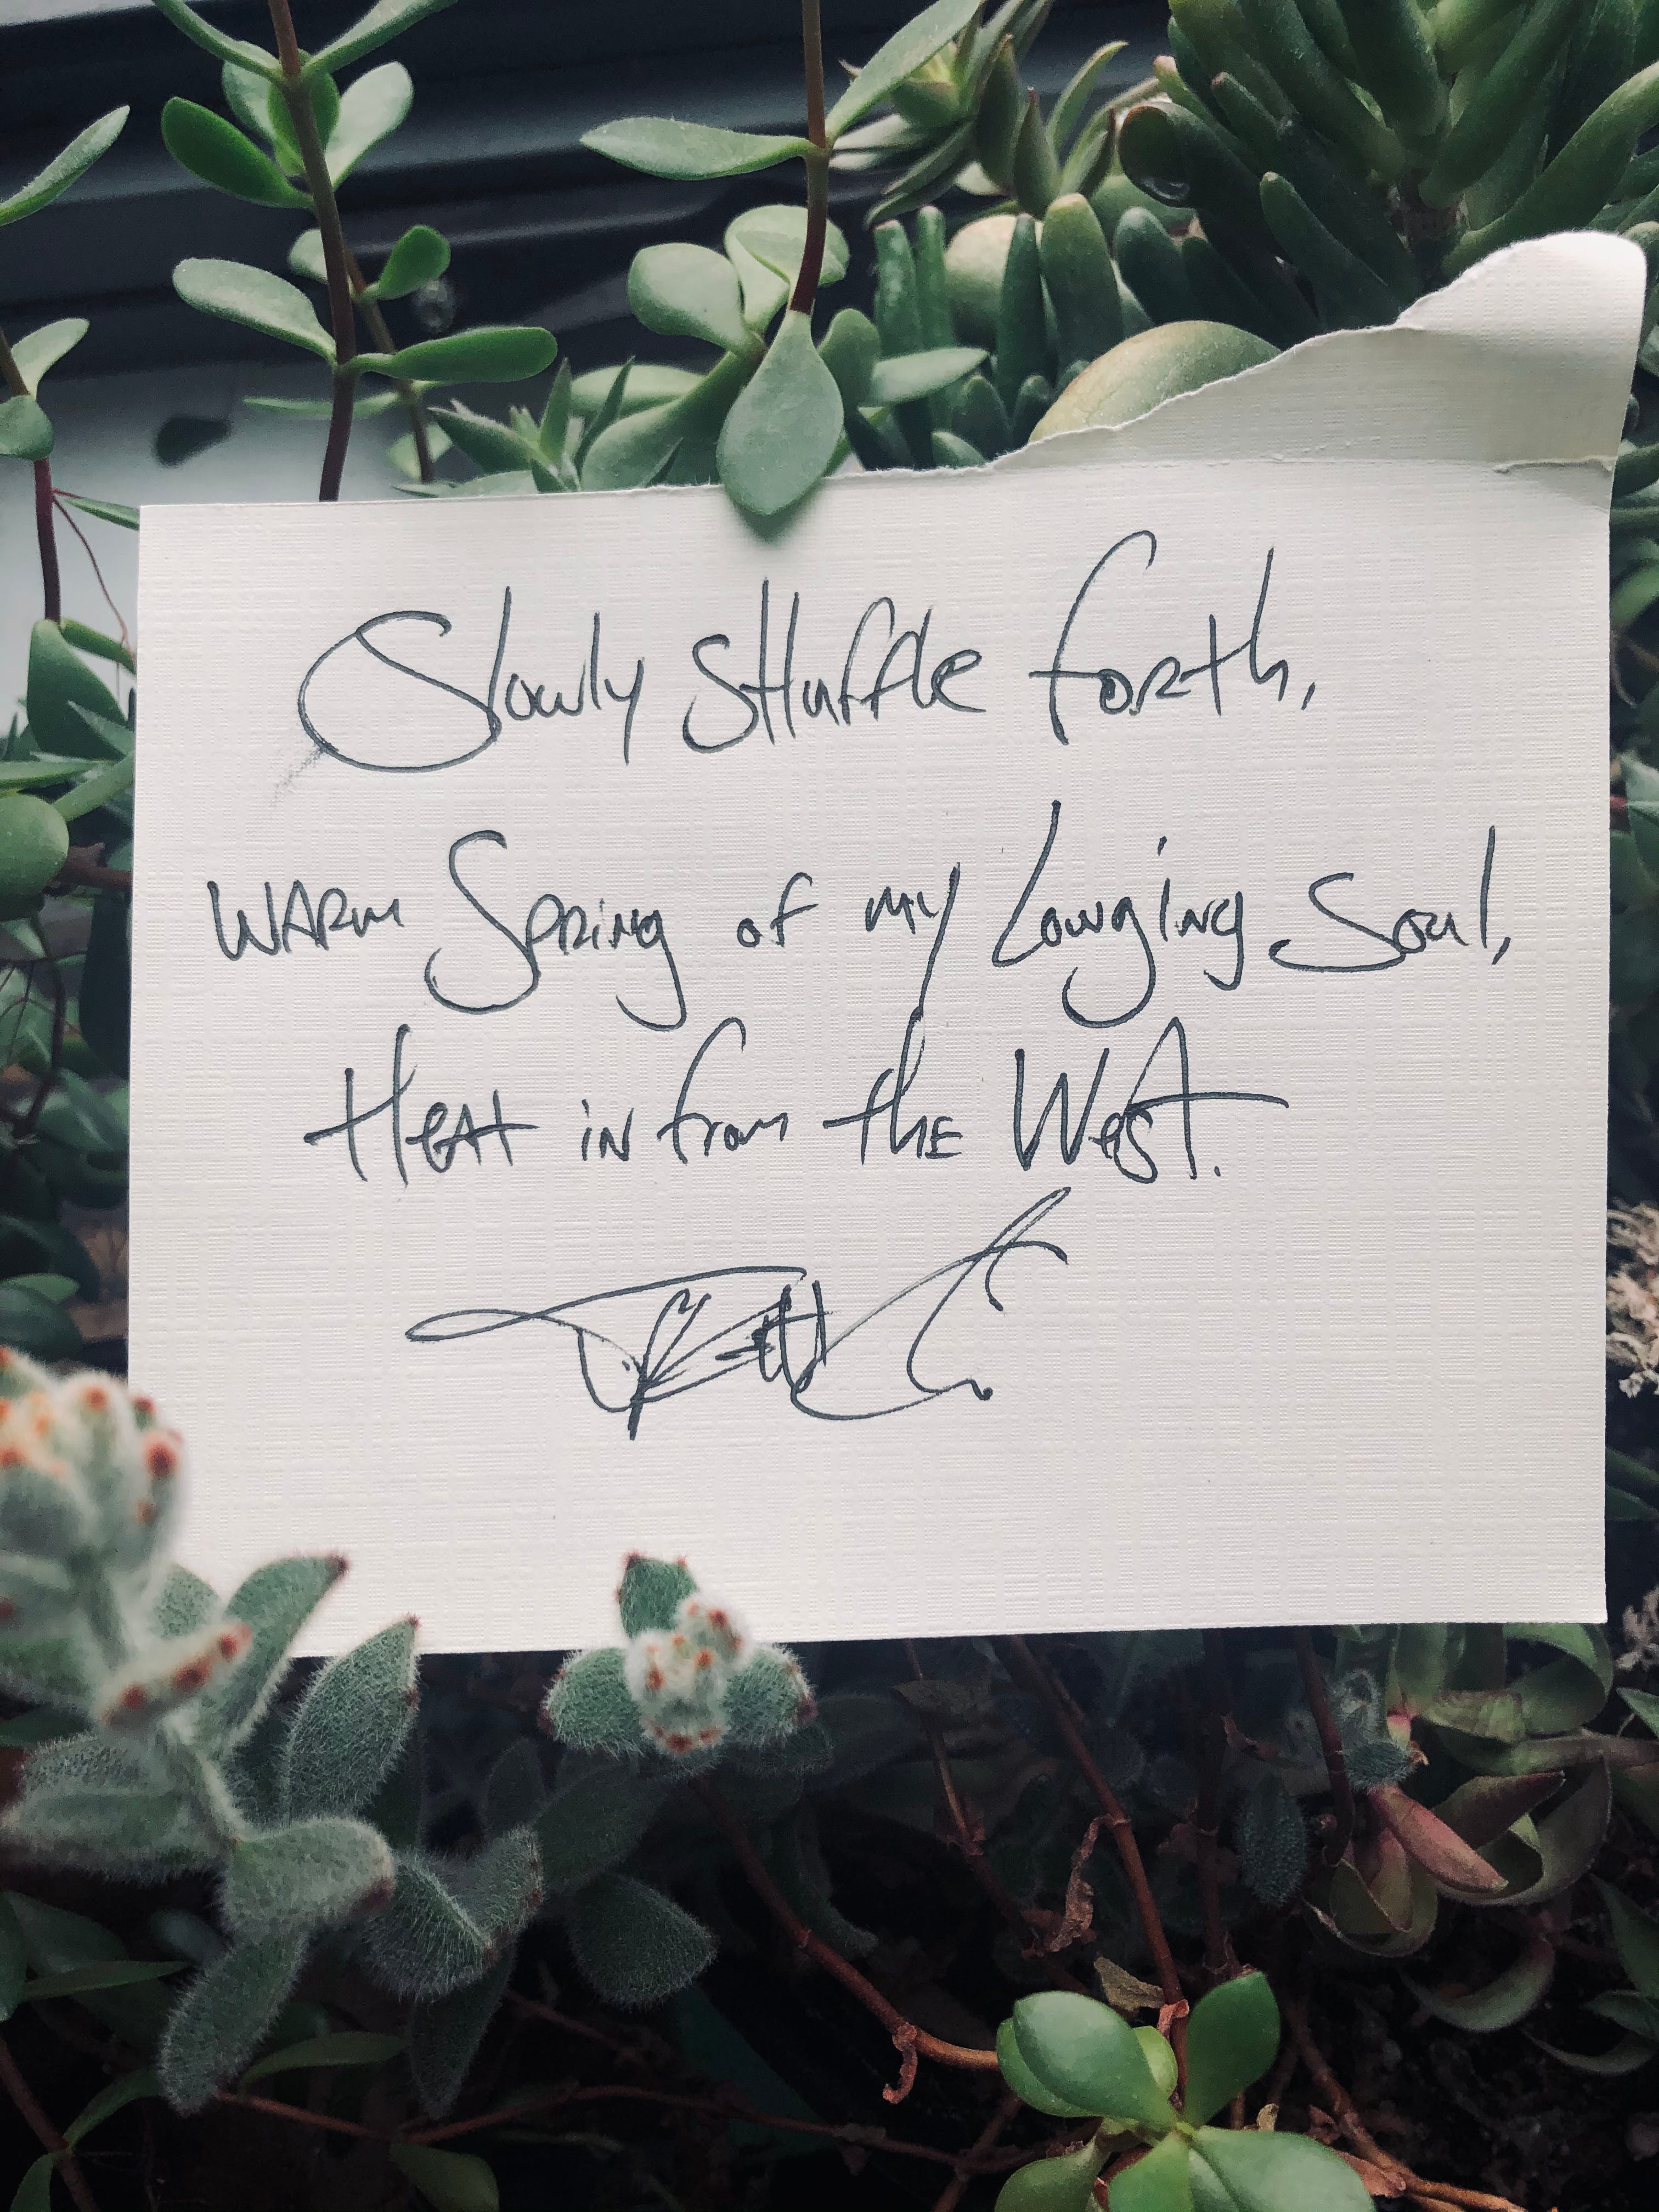 Slowly sHuffle forth,
WARm Spring of my Longing Soul,
HeAt iN from the West.